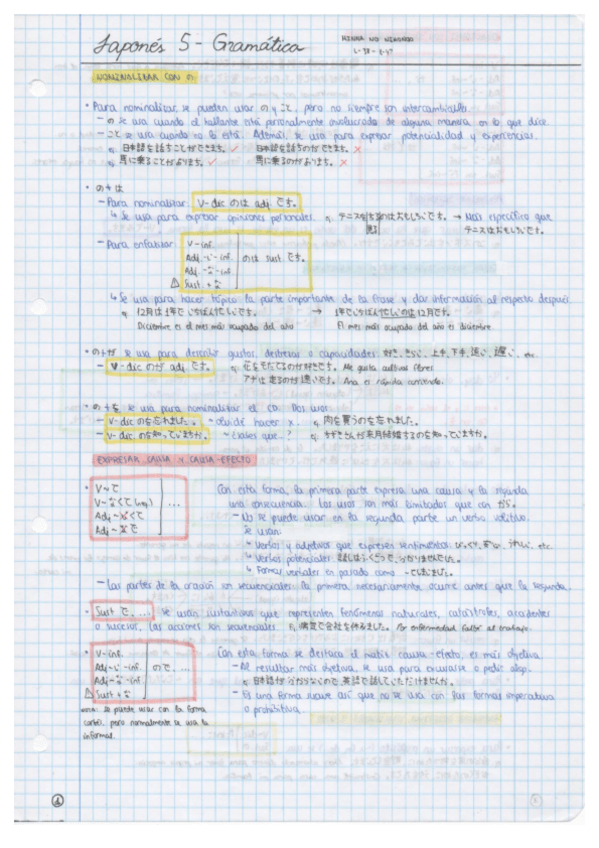 Japonés 5 - Gramática
MINNA NO NIHONGO
L-38 - L-47
NOMINALIZAR CON の
• Para nominalizar, se pueden usar の y こと, pero no siempre son intercambiables.
- の se usa cuando el hablante está personalmente involucrado de alguna manera en lo que dice.
- こと se usa cuando no lo está. Además, se usa para expresar potencialidad y experiencias.
ej. 日本語を話すことができます。 ✓ 日本語を話すのができます。 ✗
ej. 馬に乗ることがあります。 ✓ 馬に乗るのがあります。 ✗
• の + は
- Para nominalizar V-dic のは adj です。
↳ Se usa para expresar opiniones personales. ej. テニスをするのはおもしろいです。 → Más específico que
テニスはおもしろいです。
- Para enfatizar V-inf.
Adj-い-inf. のは sust. です。
Adj-な-inf.
⚠ Sust. + な
↳ Se usa para hacer tópico la parte importante de la frase y dar información al respecto después.
ej. 12月は1年でいちばん忙しいです。 → 1年でいちばん忙しいのは12月です。
Diciembre es el mes más ocupado del año El mes más ocupado del año es diciembre.
• の+が se usa para describir gustos, destrezas o capacidades: 好き, きらい, 上手, 下手, 速い, 遅い, etc.
- V-dic のが adj です。 ej. 花をそだてるのが好きです。 Me gusta cultivar flores.
アナは走るのが速いです。 Ana es rápida corriendo.
• の+を se usa para nominalizar el CD. Dos usos:
- V-dic のを忘れました。 - olvidé hacer x. ej. 肉を買うのを忘れました。
- V-dic. のを知っていますか。 - ¿Sabes que...? ej. さんが来月結婚するのを知っていますか。
EXPRESAR CAUSA Y CAUSA-EFECTO
• V~て
V~なくて (neg) ...
Adj ~いくて
Adj ~なで
Con esta forma, la primera parte expresa una causa y la segunda
una consecuencia. Los usos son más limitados que con から.
- No se puede usar en la segunda parte un verbo volitivo.
Se usan:
↳ Verbos y adjetivos que expresen sentimientos: うれしい, etc.
↳ Verbos potenciales: 話しはふくざつで、分かりませんでした。
↳ Formas verbales en pasado como
- Las partes de la oración son secuenciales: la primera necesariamente ocurre antes que la segunda.
• Sust で, ... Se usan sustantivos que representen fenómenos naturales, catástrofes, accidentes
o sucesos. Las acciones son secuenciales. ej. 病気で会社を休みました。 Por enfermedad faltó al trabajo.
• V-inf.
Adj-い-inf. ので、...
Adj-な-inf.
⚠ Sust + な
Con esta forma se destaca el matiz causa-efecto, es más objetiva.
- Al resultar más objetiva, se usa para excusarse o pedir algo.
ej. 日本語が分からないので、英語で話していただけませんか。
- Es una forma suave así que no se usa con las formas imperativa
o prohibitiva.
NOTA: Se puede usar con la forma
cortés, pero normalmente se usa la
informal.
1